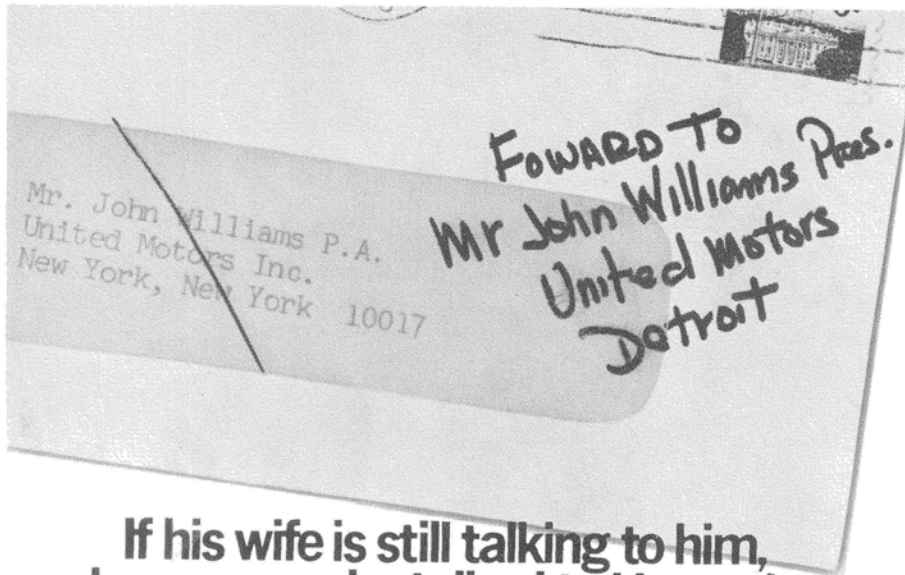 Mr. John Williams P.A.
United Motors Inc.
New York, New York 10017
FOWARD TO
Mr John Williams Pres.
United Motors
Detroit
If his wife is still talking to him,